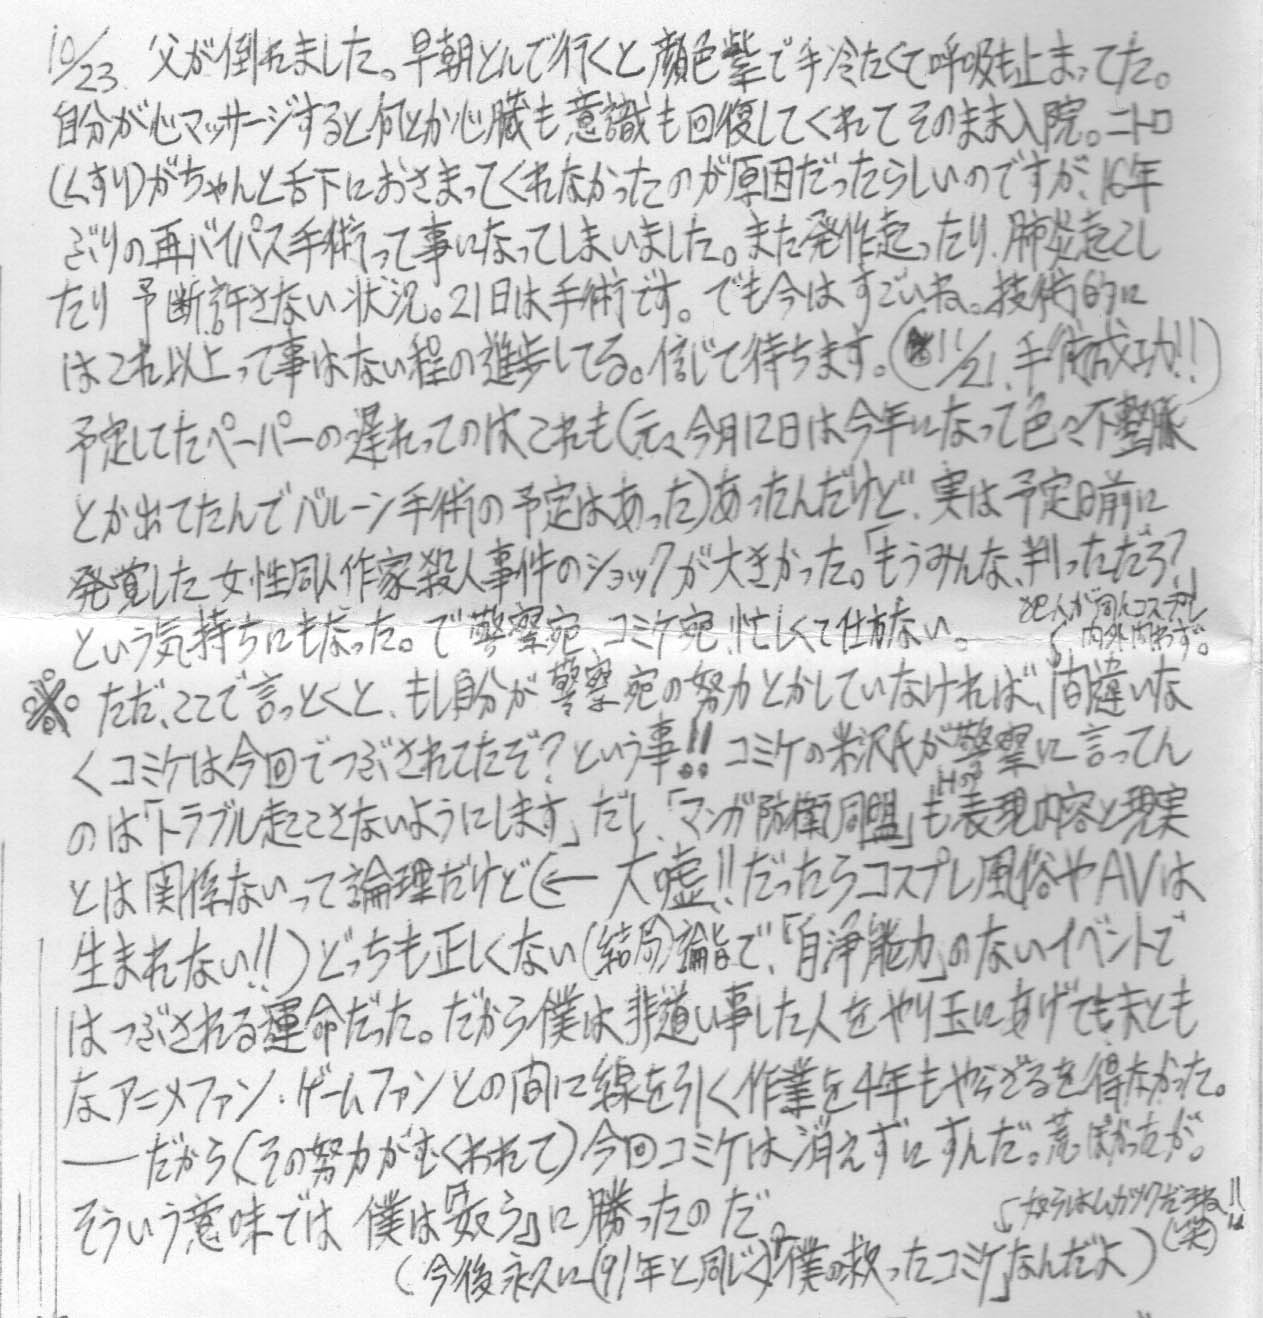 10/23 父が倒れました。早朝とんで行くと顔色紫で手冷たくて呼吸も止まってた。
自分が心マッサージすると何とか心臓も意識も回復してくれてそのまま入院。ニトロ
(くすり)がちゃんと舌下におさまってくれなかったのが原因だったらしいのですが、16年
ぶりの再バイパス手術って事になってしまいました。また発作起ったり、肺炎起こし
たり予断許さない状況。21日は手術です。でも今はすごいね。技術的に
はこれ以上って事はない程の進歩してる。信じて待ちます。(11/21、手術成功!!)
予定してたペーパーの遅れってのはこれも(元々今月12日は今年になって色々不整脈
とか出てたんでバルーン手術の予定はあった)あったんだけど、実は予定日前に
発覚した女性同人作家殺人事件のショックが大きかった。「もうみんな、判っただろ?」
犯人が同人コスプレ
という気持ちにもなった。で警察宛、コミケ宛、忙しくて仕方ない。
内外問わず。
※ただ、ここで言っとくと、もし自分が警察宛の努力とかしていなければ、間違いな
くコミケは今回でつぶされてたぞ?という事!!コミケの米沢氏が警察に言ってん
のは「トラブル起こさないようにします」だし、「マンガ防衛同盟」もHの表現内容と現実
とは関係ないって論理だけど(←大嘘!!だったらコスプレ風俗やAVは
生まれない!!)どっちも正しくない(結局)論旨で、「自浄能力」のないイベントで
はつぶされる運命だった。だから僕は非道い事した人をやり玉にあげてもまとも
なアニメファン・ゲームファンとの間に線を引く作業を4年もやらざるを得なかった。
――だから(その努力がむくわれて)今回コミケは消えずにすんだ。荒っぽかったが。
そういう意味では僕は「奴ら」に勝ったのだ
奴らはムカツクだろうね!!(笑)
(今後永久に(91年と同じく)「僕の救ったコミケ」なんだよ)